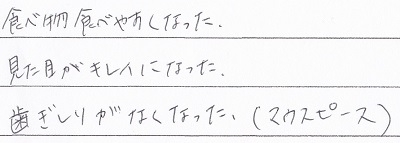 食べ物食べやすくなった.
見た目がキレイになった.
歯ぎしりがなくなった、(マウスピース)